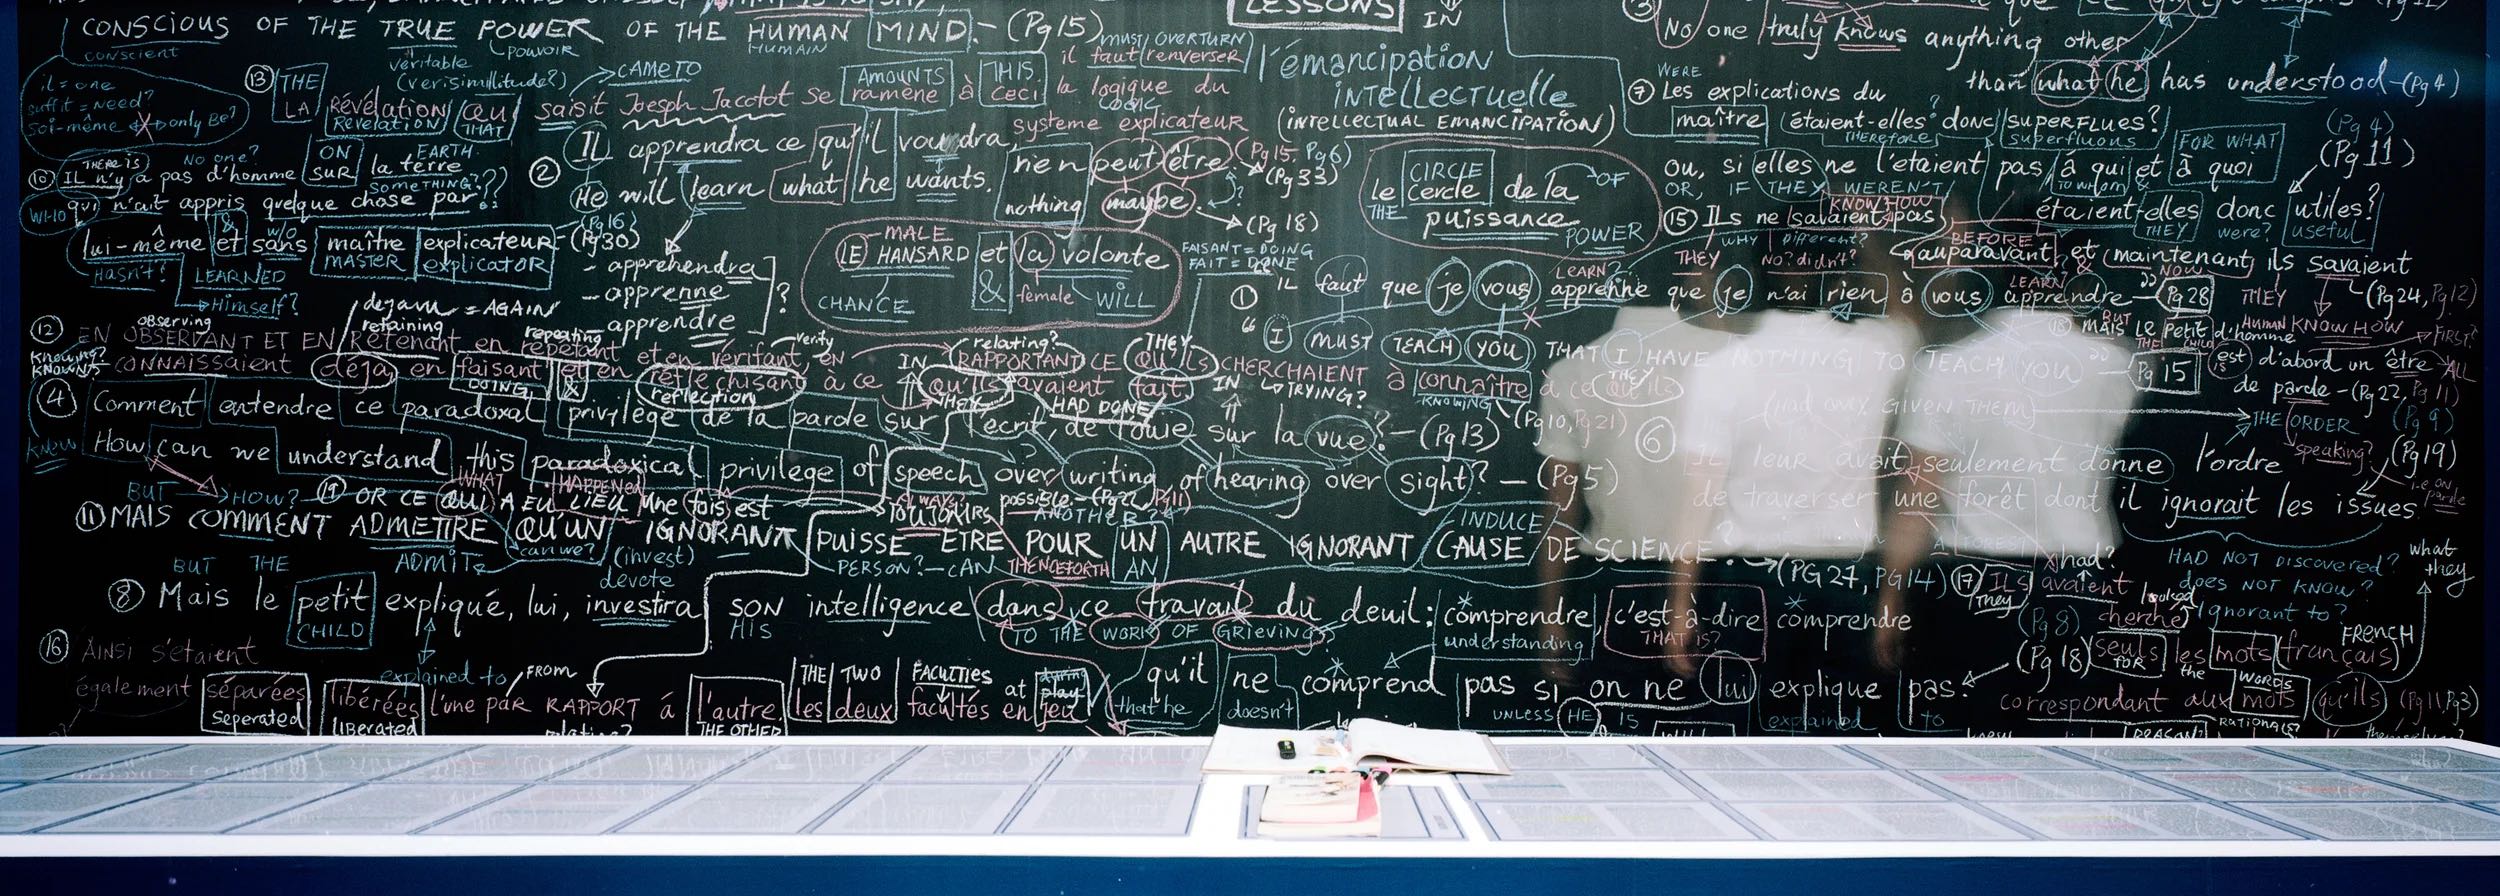 CONSCIOUS OF THE TRUE POWER OF THE HUMAN MIND - (Pg 15)
conscient
véritable
(verisimilitude?)
pouvoir
HUMAIN
LESSONS IN
l'émancipation
intellectuelle
(INTELLECTUAL EMANCIPATION)
No one truly knows anything other
than what he has understood - (Pg 4)
il = one
suffit = need?
soi-même only Be?
⑬ THE
LA Révélation qu
Revelation THAT
CAME TO
saisit Joesph Jacotot se ramène à ceci
AMOUNTS THIS.
MUST OVERTURN
il faut renverser
la logique du
LOGIC
systeme explicateur
(Pg 15, Pg 6)
(Pg 33)
WERE
⑦ Les explications du
maître étaient-elles donc superflues?
therefore superfluous
FOR WHAT
(Pg 4)
(Pg 11)
ou, si elles ne l'etaient pas à qui et à quoi
OR, IF THEY WEREN'T to whom
étaient-elles donc utiles?
THEY were? useful
THERE IS NO ONE? ON EARTH.
⑩ IL n'y a pas d'homme sur la terre
SOMETHING?
WHO qui n'ait appris quelque chose par
lui-même et sans maître explicateur
& w/o MASTER explicator
(Pg 16)
(Pg 30)
Hasn't? LEARNED
Himself?
② IL apprendra ce qu'il voudra,
He will learn what he wants.
nen peut être
nothing maybe.
(Pg 18)
- apprehendra
- apprenne
- apprendre
?
MALE
LE HANSARD et la volonte
CHANCE & female WILL
FAISANT = DOING
FAIT = DONE
CIRCLE OF
le cercle de la
THE puissance
POWER
KNOW HOW
⑮ Ils ne savaient pas
WHY different? BEFORE
No? didn't?
auparavant et maintenant ils savaient
& NOW
THEY
KNOW HOW
(Pg 24, Pg 12)
① IL faut que je vous apprenne que je n'ai rien à vous apprendre
LEARN? THEY LEARN
Pg 28
" I MUST TEACH YOU THAT I HAVE NOTHING TO TEACH YOU
Pg 15
dejavu = AGAIN
observing
retaining
repeating
verify
relating?
⑫ EN OBSERVANT ET EN Retenant en répétant et en vérifiant, en
IN RAPPORTANT CE QU'ILS CHERCHAIENT à connaître à ce qu'ils
THEY TRYING? KNOWING THEY
knowing?
KNOWN?
CONNAISSAIENT déjà en faisant et en réfléchisant à ce qu'ils avaient fait.
DOING & reflection THEY HAD DONE
(Pg 10, Pg 21)
BUT
⑱ mais le petit d'homme
THE CHILD HUMAN FIRST?
est d'abord un être
is ALL
de parole - (Pg 22, Pg 11)
④ Comment entendre ce paradoxal privilège de la parole sur l'écrit, de l'ouïe sur la vue? - (Pg 13)
know
How can we understand this paradoxical privilege of speech over writing, of hearing over sight? - (Pg 5)
(had only GIVEN THEM)
THE ORDER
(Pg 9)
speaking?
(Pg 19)
⑥ IL leur avait seulement donne l'ordre
de traverser une forêt dont il ignorait les issues
A FOREST
WHAT HAPPENED
BUT HOW?
⑲ OR CE QUI A EU LIEU Une fois est TOUJOURS possible - (Pg 22, Pg 11)
ALWAYS? ANOTHER?
⑪ MAIS COMMENT ADMETTRE QU'UN IGNORANT PUISSE ETRE POUR UN AUTRE IGNORANT CAUSE DE SCIENCE? → (PG 27, PG 14)
INDUCE
BUT THE
ADMIT
can we?
(invest)
devote
PERSON? - CAN
THENCEFORTH
AN
HAD NOT DISCOVERED?
does NOT KNOW?
Ignorant to?
what
they
⑧ Mais le petit expliqué, lui, investira son intelligence dans ce travail du deuil: comprendre c'est-à-dire comprendre
CHILD
explained to
HIS
TO THE WORK OF GRIEVING?
understanding
THAT IS?
had?
⑰ ILS avaient
They looked
cherché
(Pg 8)
(Pg 18) seuls les mots français
FOR the WORDS FRENCH
correspondant aux mots qu'ils (Pg 11, Pg 3)
qu'il ne comprend pas si on ne lui explique pas.
that he doesn't
UNLESS HE IS explained to
⑯ AINSI s'étaient
également séparées libérées l'une par RAPPORT à l'autre. les deux facultés en jeu
Seperated liberated FROM THE OTHER
THE TWO FACULTIES at play
during